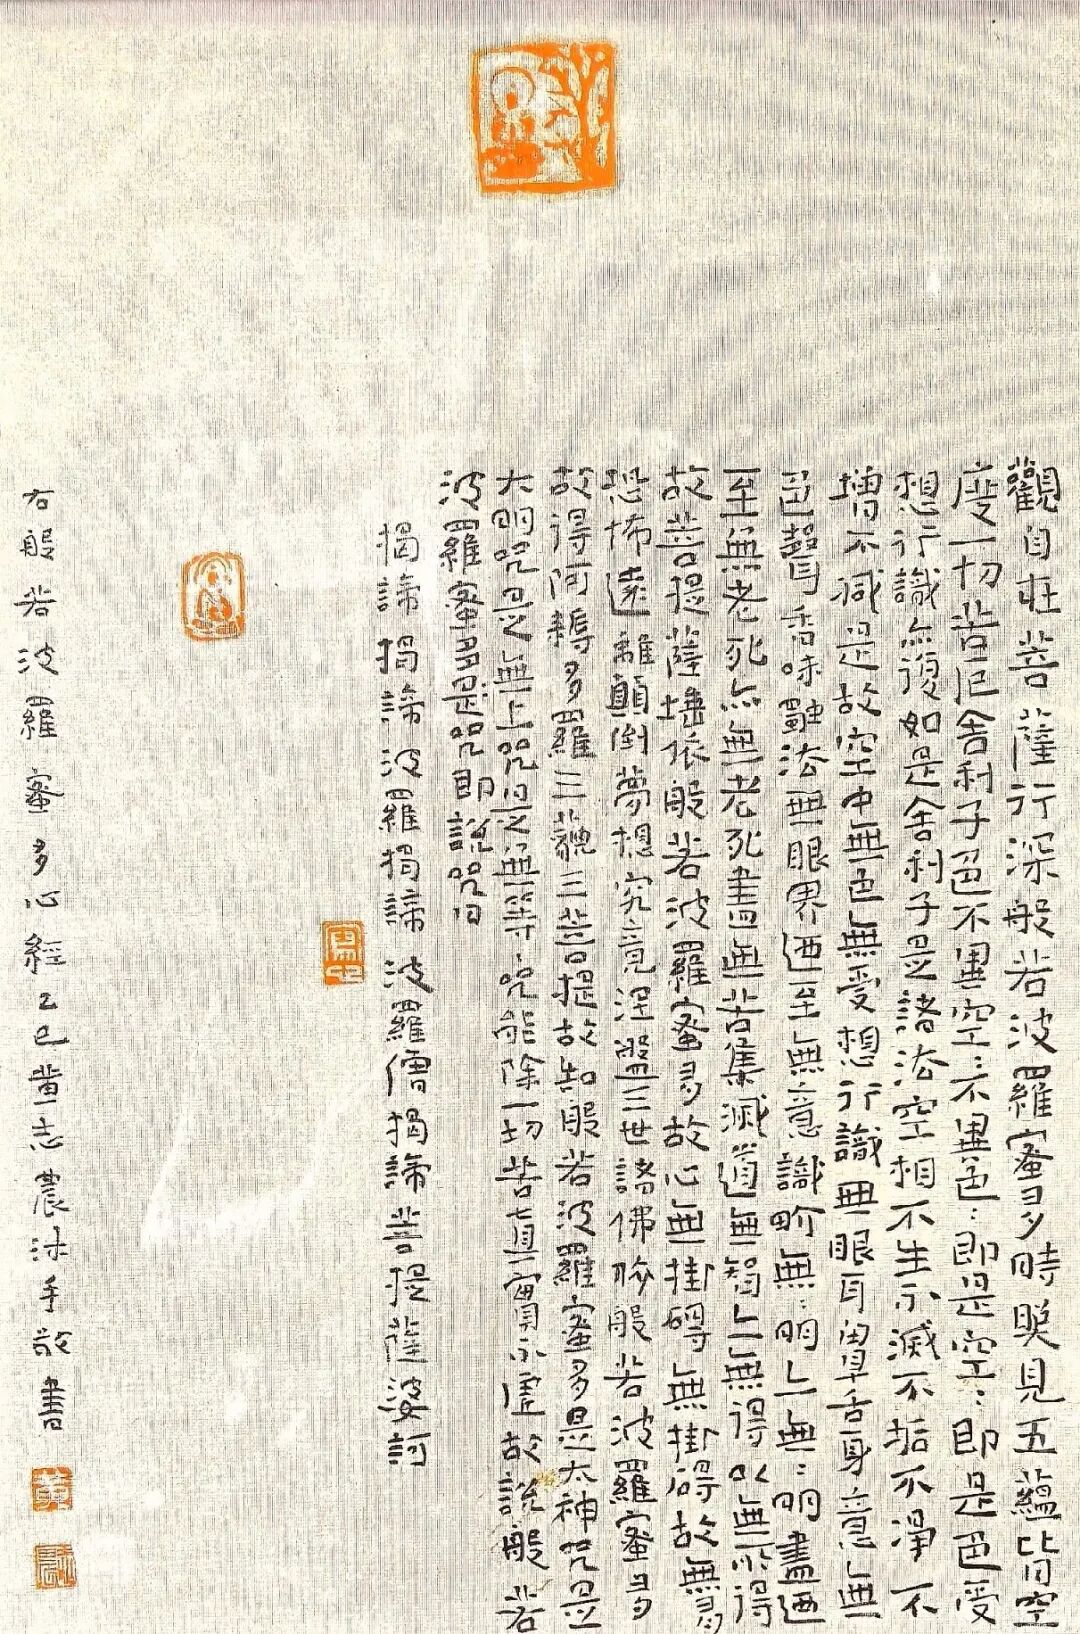 觀自在菩薩行深般若波羅蜜多時照見五蘊皆空
度一切苦厄舍利子色不異空〻不異色〻即是空〻即是色受
想行識亦復如是舍利子是諸法空相不生不滅不垢不淨不
增不減是故空中無色無受想行識無眼耳鼻舌身意無
色聲香味觸法無眼界迺至無意識界無〻明亡無〻明盡迺
至無老死亦無老死盡無苦集滅道無智亡無得以無所得
故菩提薩埵依般若波羅蜜多故心無掛碍無掛碍故無有
恐怖遠離顛倒夢想究竟涅盤三世諸佛依般若波羅蜜多
故得阿耨多羅三藐三菩提故知般若波羅蜜多是大神咒是
大明咒是無上咒是無等〻咒能除一切苦真實不虛故說般若
波羅蜜多是咒即說咒曰
揭諦揭諦波羅揭諦波羅僧揭諦菩提薩婆訶
右般若波羅蜜多心經乙巳黃志農沐手敬書
黃